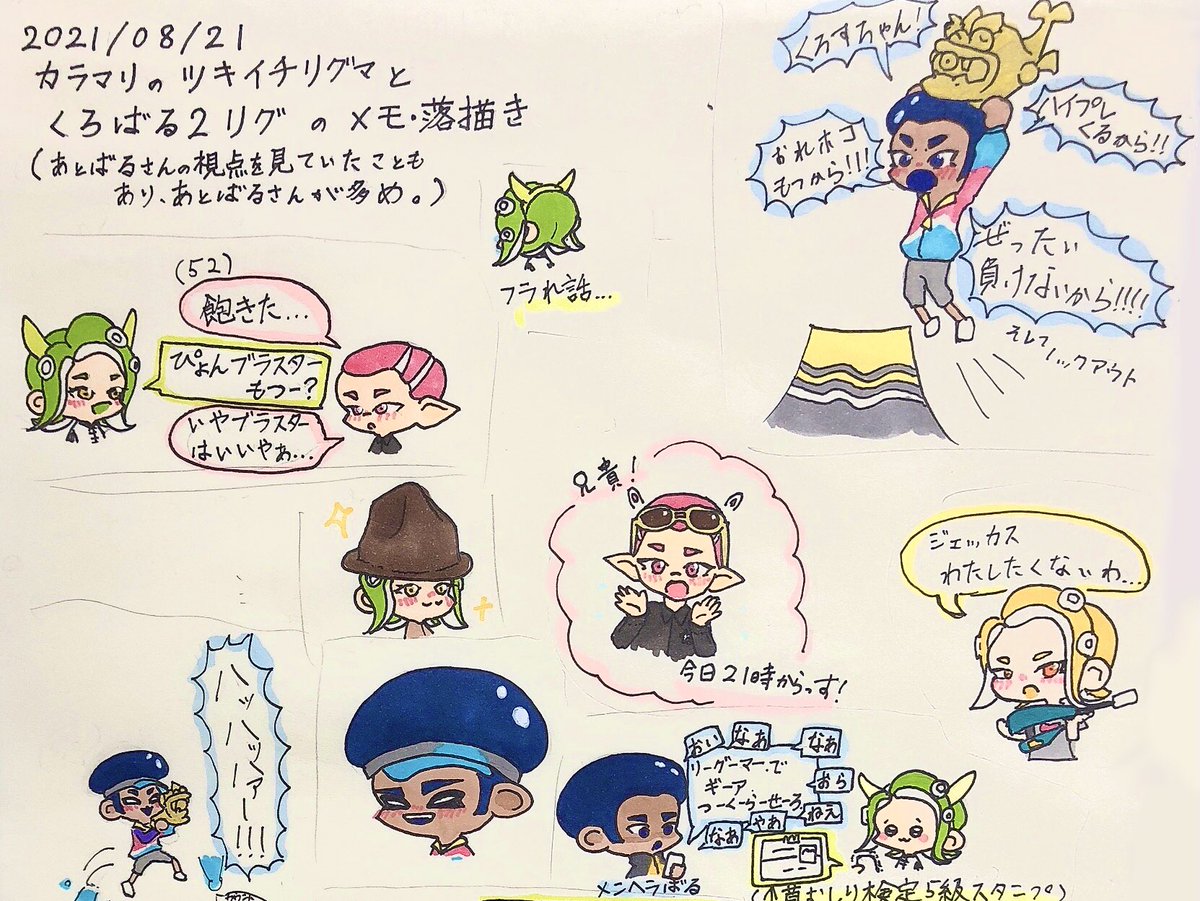 2021/08/21
カラマリのツキイチリグマと
くろばる2リグのメモ・落描き
(あとばるさんの視点を見ていたことも
あり、あとばるさんが多め。)
くろすちゃん!
ハイプレ
くるから!!
おれホコ
もつから!!!
ぜったい
負けないから!!!!
そしてノックアウト
フラれ話...
(52)
飽きた...
ぴょんブラスター
もつー?
いやブラスター
はいいやぁ...
兄貴!
今日21時からっす!
ジェッカス
わたしたくないわ...
ハッハッハァー!!!
おい
なぁ
なぁ
リーグーマーで
ギーア
つーくーらーせーろ
おら
ねえ
やぁ
なぁ
メンヘラばる
検定5級スタンプ)